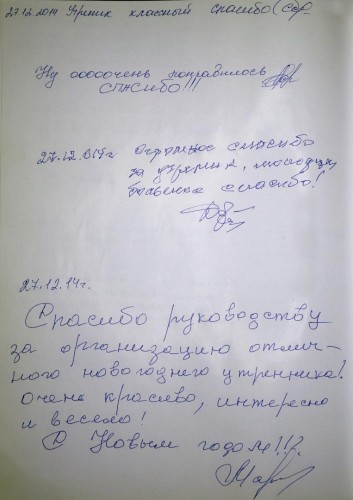 27.12.2014 Утреник классный спасибо (
Ну ооооочень понравилось
СПАСИБО!!!
27.12.014г огромное спасибо
за утреник, молодцы,
большое спасибо!
27.12.14г.
Спасибо руководству
за организацию отлич-
ного новогоднего утренника!
Очень красиво, интересно
и весело!
С Новым годом!!!